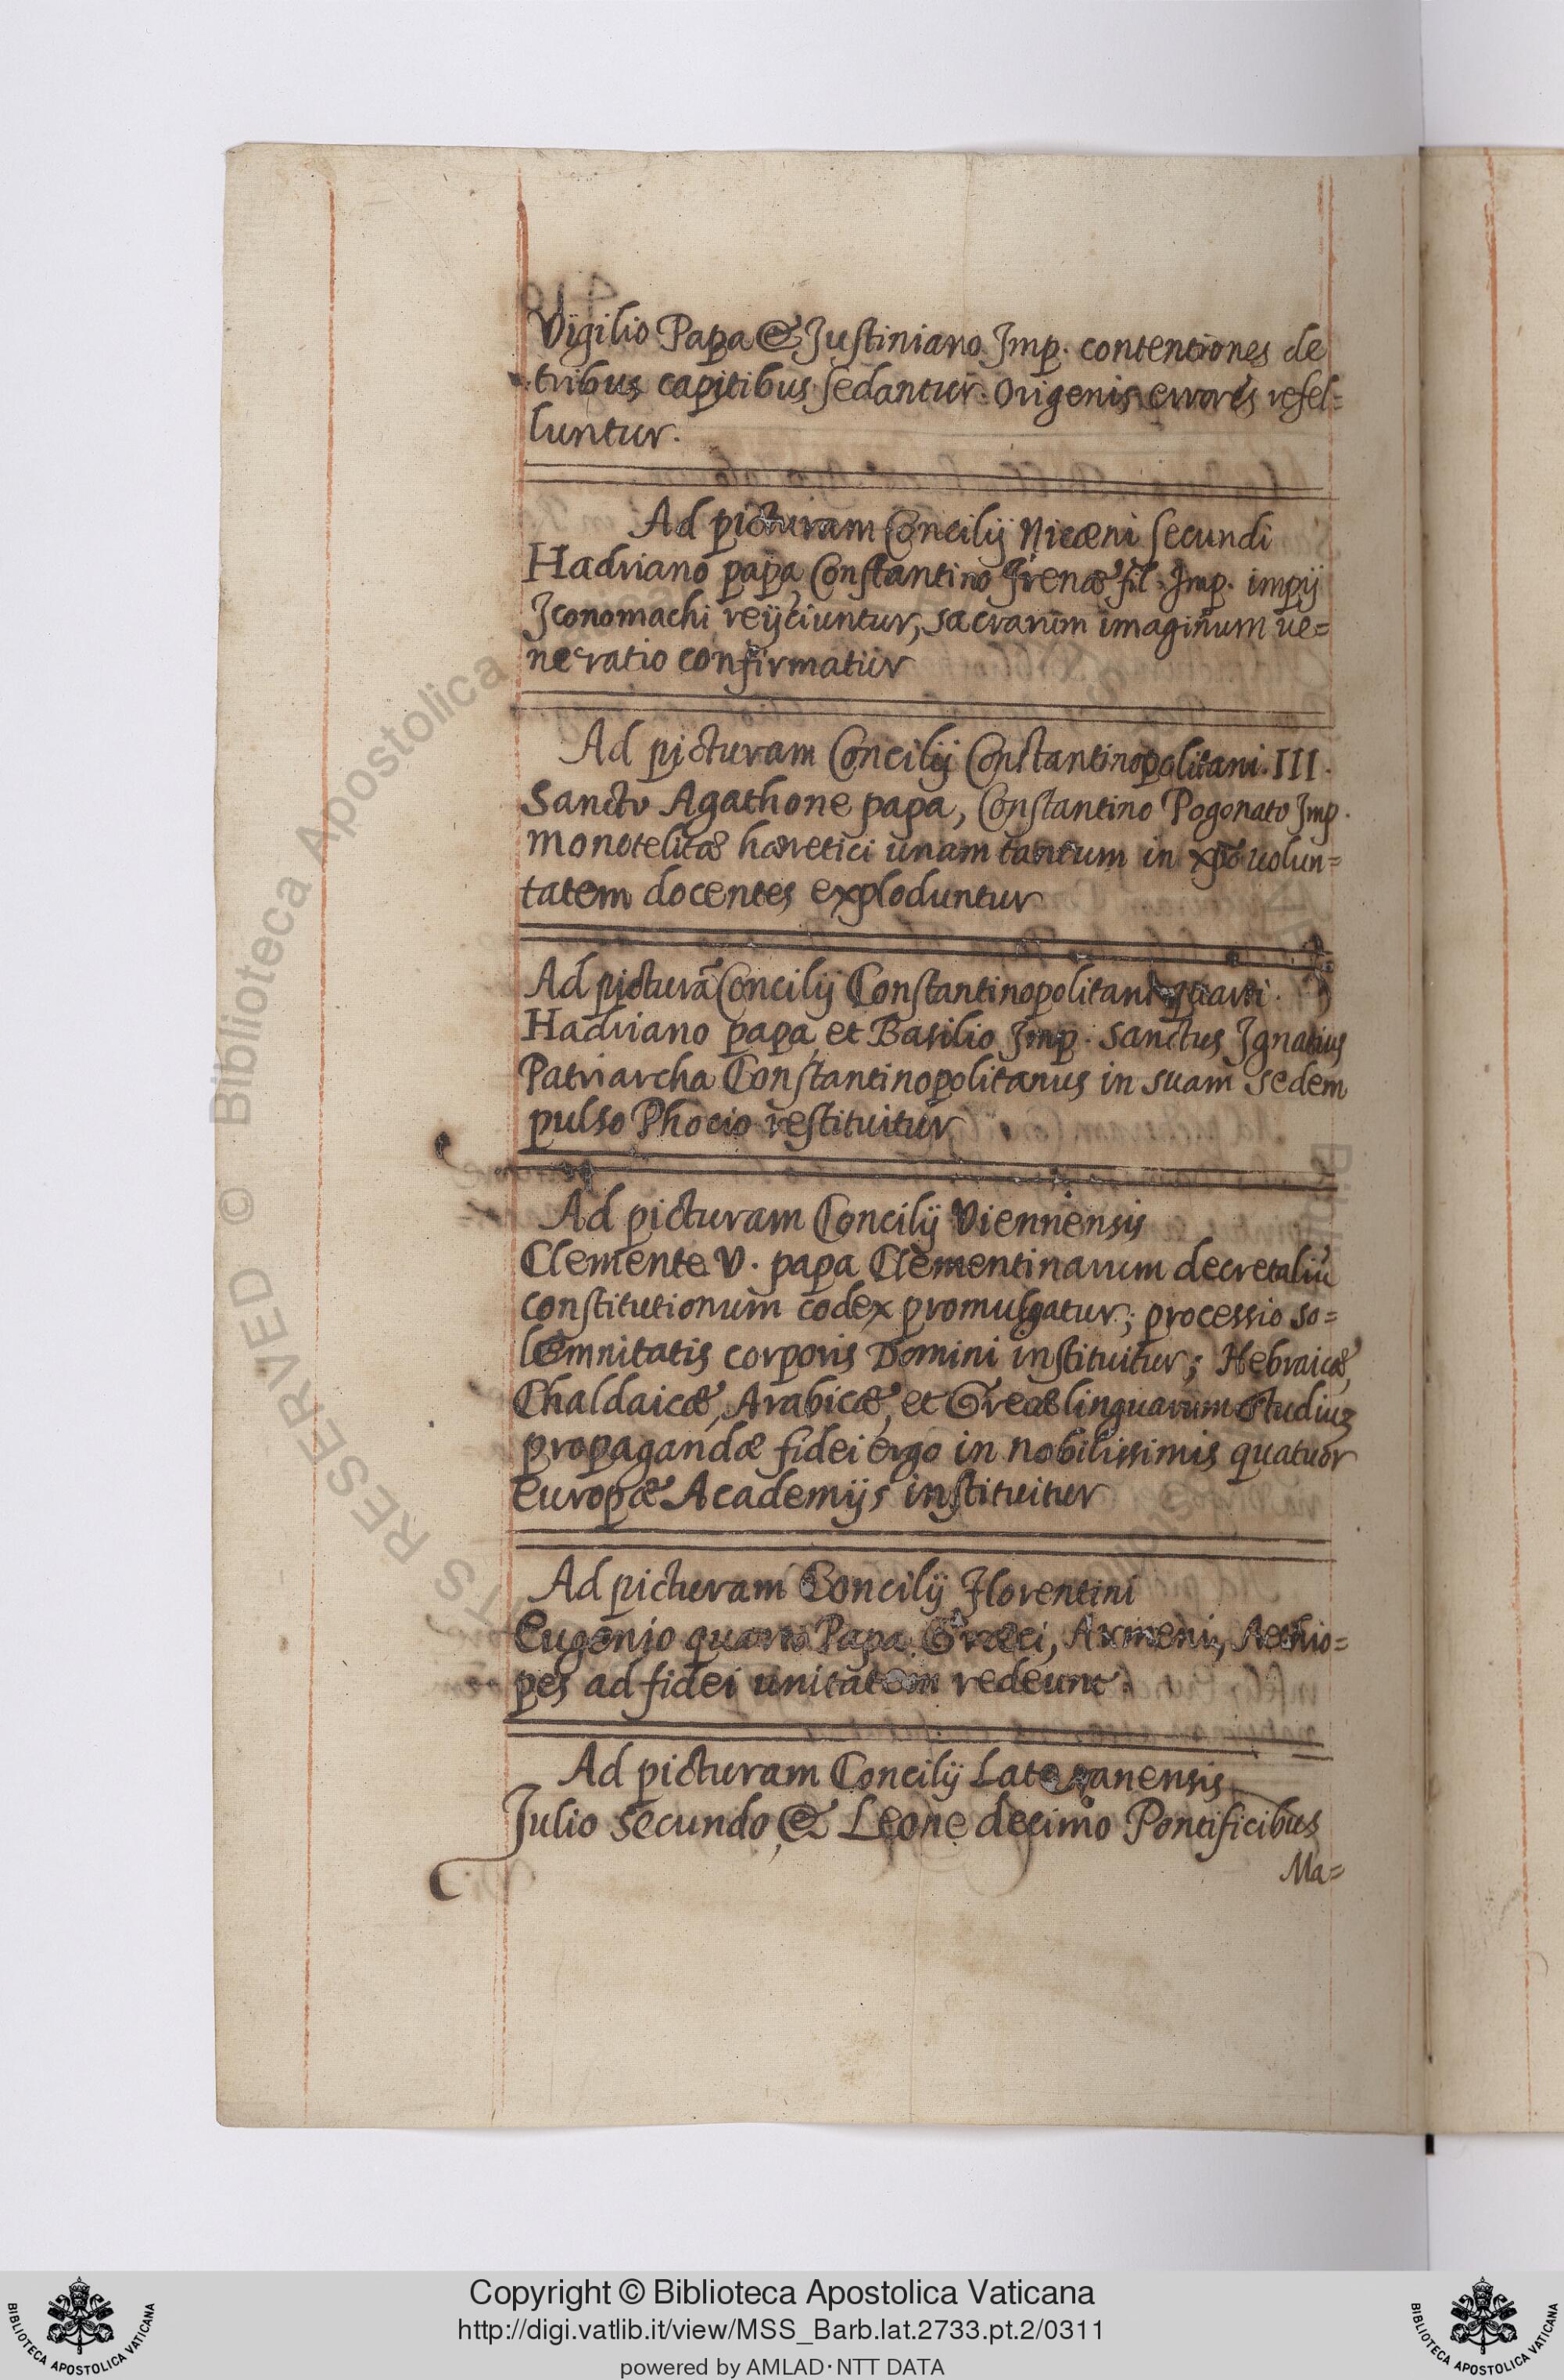 Vigilio Papa & Justiniano Imp. contentiones de
tribus capitibus sedantur. Origenis errores refel=
luntur.
Ad picturam Concilij Nicæni secundi
Hadriano papa, Constantino Irenæ fil. Imp. impij
Iconomachi reijciuntur, sacrarum imaginum ue=
neratio confirmatur
Ad picturam Concilij Constantinopolitani. III.
Sancto Agathone papa, Constantino Pogonato Imp.
Monotelitæ hæretici unam tantum in xpō uolun=
tatem docentes exploduntur
Ad picturā Concilij Constantinopolitani quarti.
Hadriano papa, et Basilio Imp. sanctus Ignatius
Patriarcha Constantinopolitanus in suam sedem
pulso Phocio restituitur
Ad picturam Concilij Viennensis
Clemente V. papa Clementinarum decretaliū
constitutionum codex promulgatur; processio so=
lemnitatis corporis Domini instituitur; Hebraicæ,
Chaldaicæ, Arabicæ, et Grecæ linguarum studiuʒ
propagandæ fidei ergo in nobilissimis quatuor
Europæ Academijs instituitur
Ad picturam Concilij Florentini
Eugenio quarto Papa Græci, Armeni, Aethio=
pes ad fidei unitatem redeunt.
Ad picturam Concilij Lateranensis
Julio secundo, & Leone decimo Pontificibus
Ma=
© Biblioteca Apostolica
RESERVED
Copyright © Biblioteca Apostolica Vaticana
http://digi.vatlib.it/view/MSS_Barb.lat.2733.pt.2/0311
powered by AMLAD·NTT DATA
BIBLIOTECA APOSTOLICA VATICANA
BIBLIOTECA APOSTOLICA VATICANA